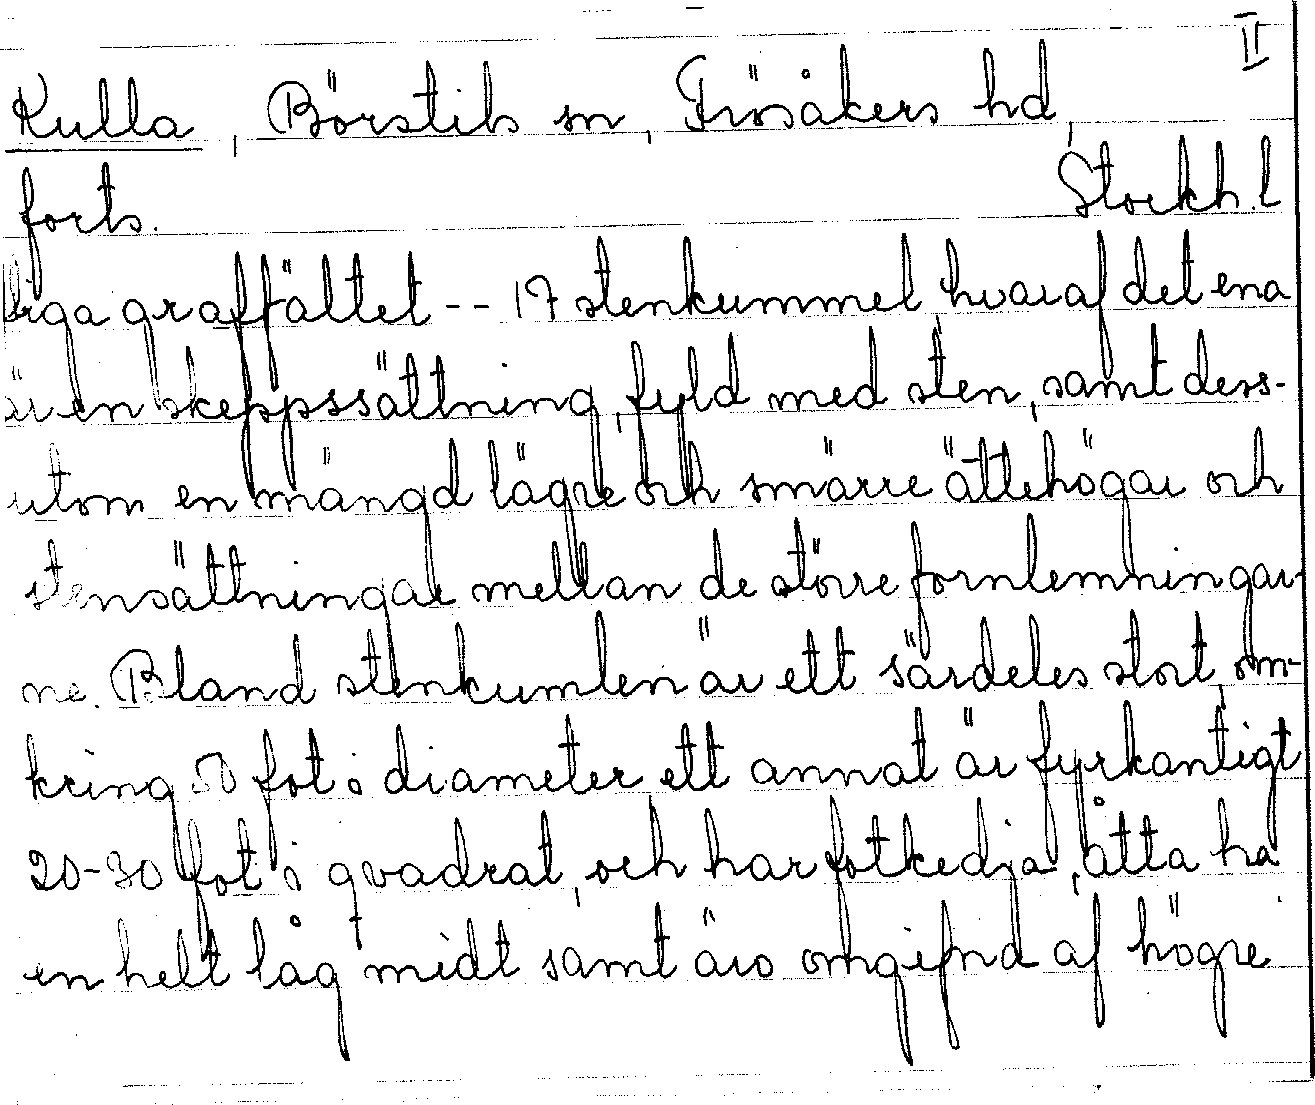 II
Kulla, Börstils sn, Frösåkers hd,
forts. Stockh. l
liga graffältet -- 17 stenkummel hvaraf det ena
är en skeppssättning, fyld med sten, samt dess-
utom en mängd lägre och smärre ättehögar och
stensättningar mellan de större fornlemningar-
ne. Bland stenkumlen är ett särdeles stort, om-
kring 50 fot i diameter ett annat är fyrkantigt
20-30 fot i qvadrat, och har fotkedja, åtta ha
en helt låg midt samt äro omgifnd af högre